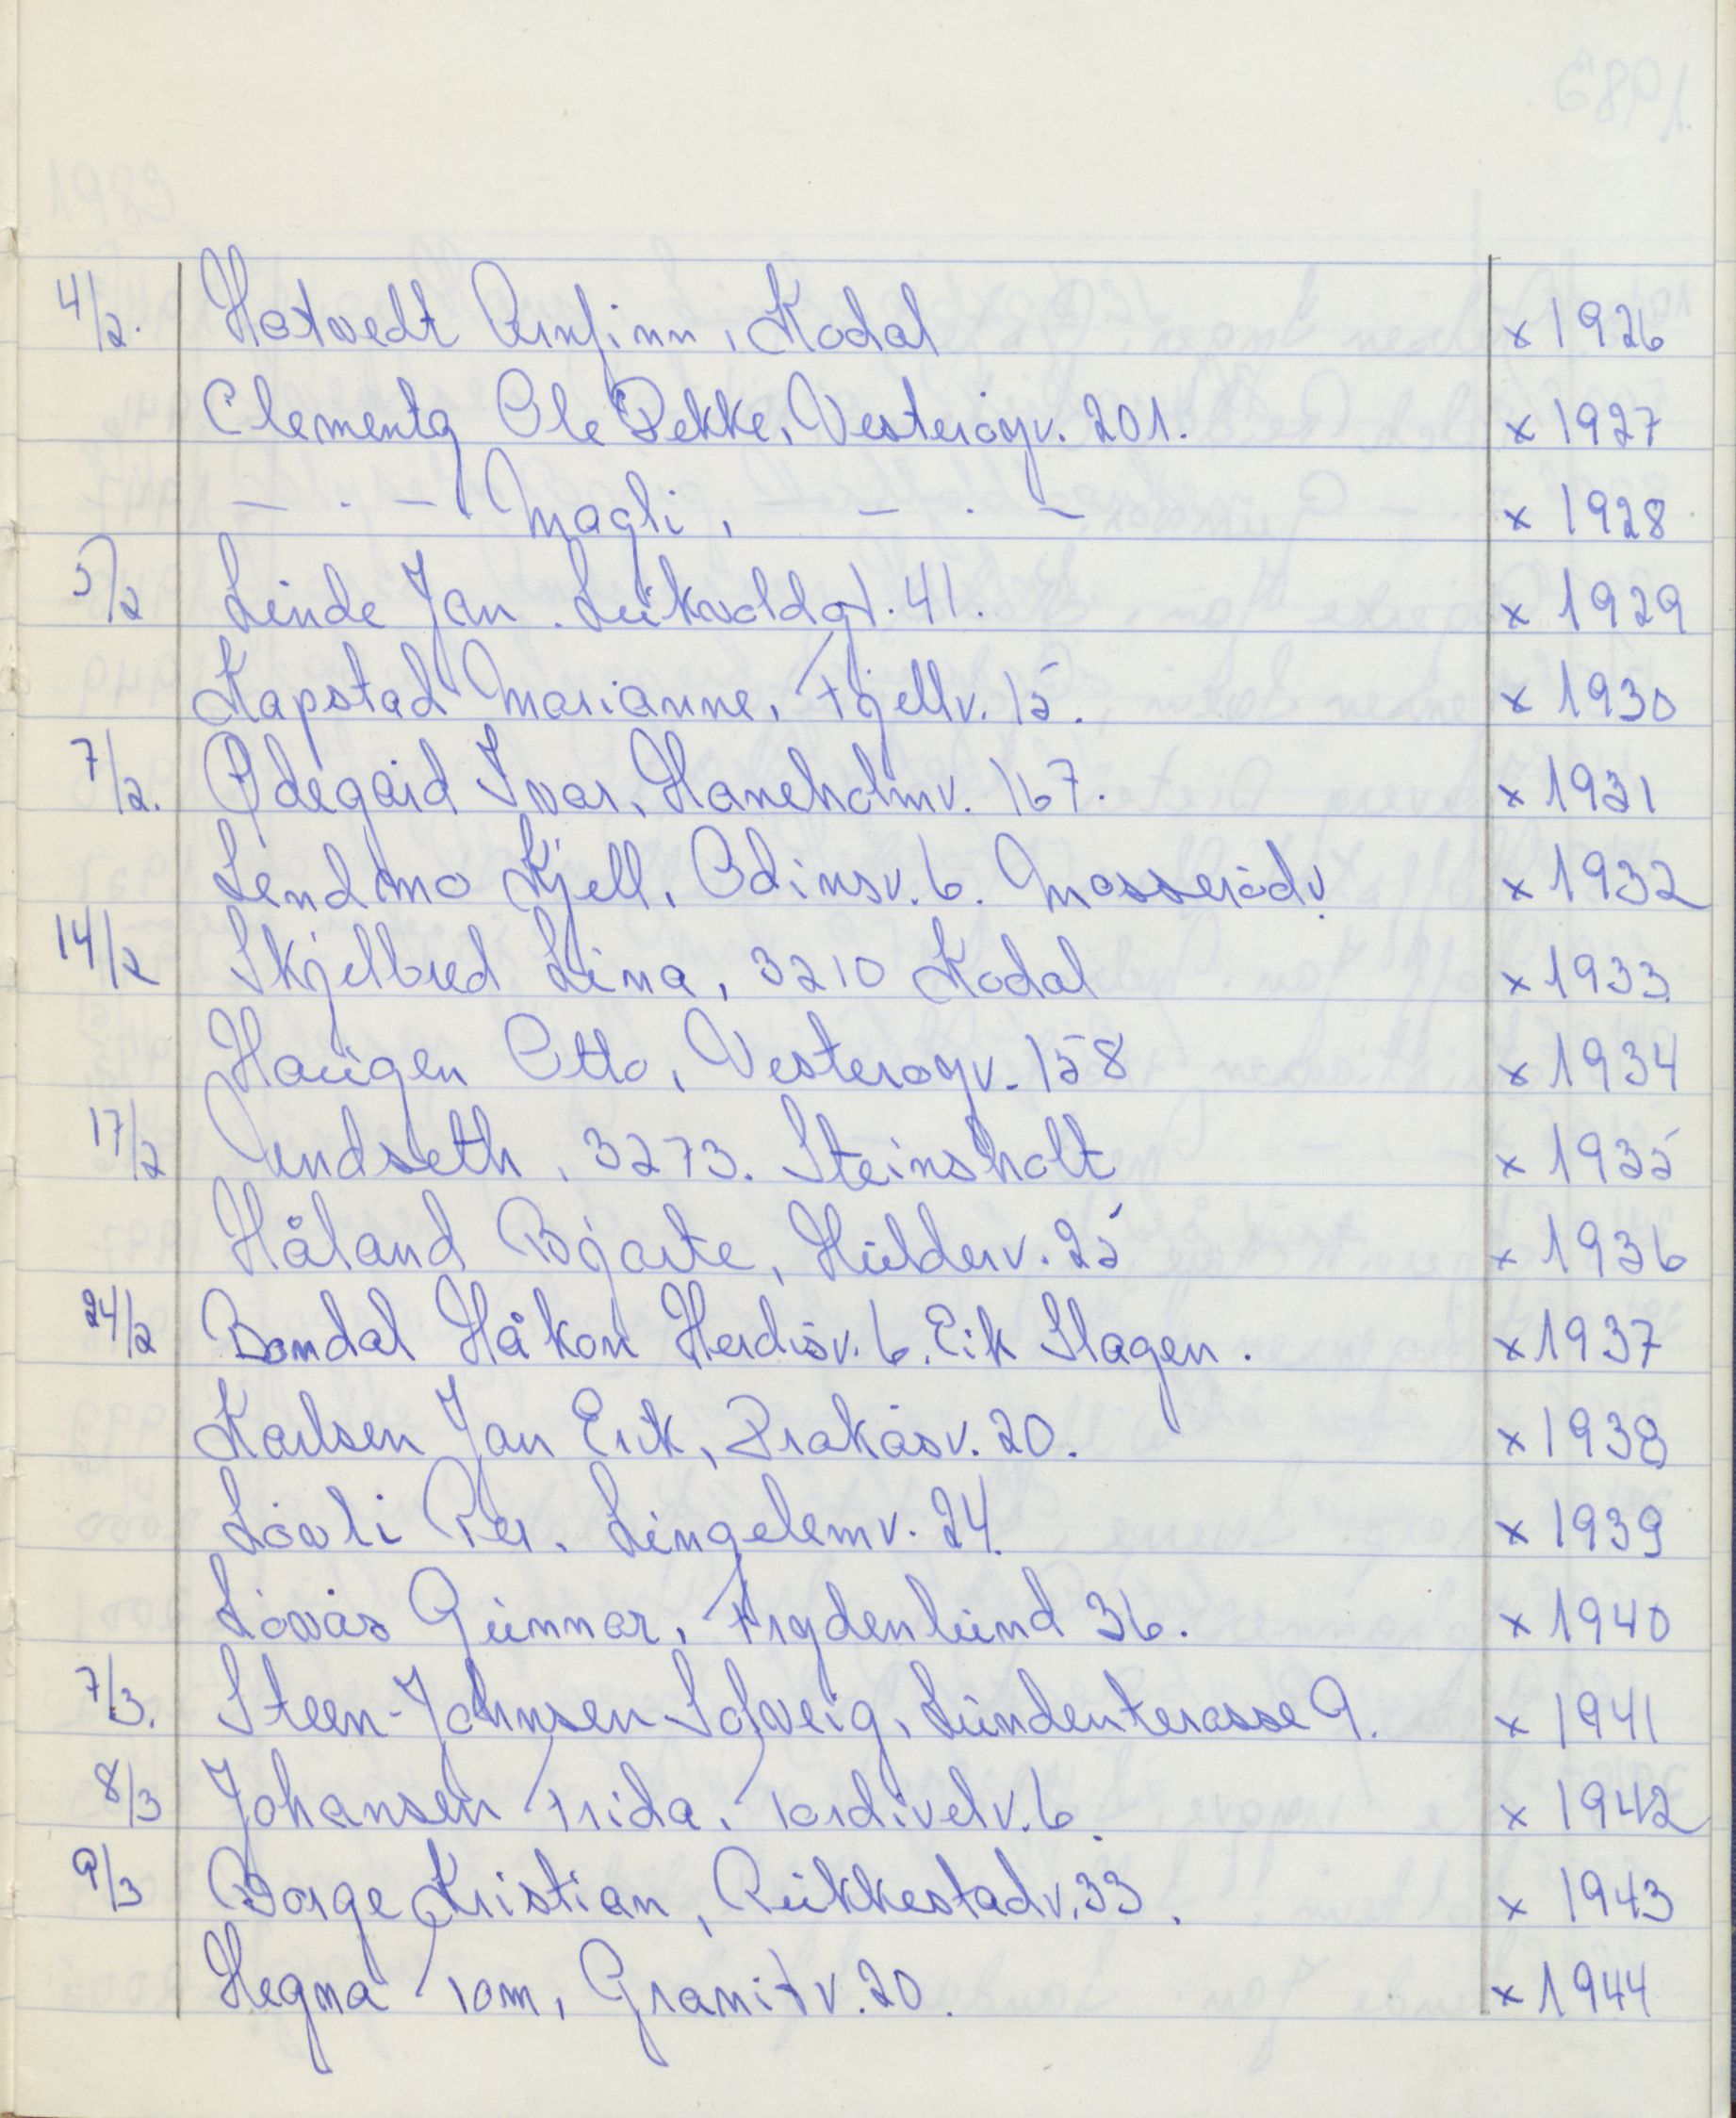 4/2. Hotvedt Arnfinn, Kodal x 1926
Clementz Ole Bekke, Vesterøyv. 201. x 1927
— . — Magli, — . — x 1928
5/2 Linde Jan. Leikvoldgt. 41. x 1929
Kapstad Marianne, Fjellv. 15. x 1930
7/2. Ødegård Ivar, Haneholmv. 167. x 1931
Lendmo Kjell, Odinsv. 6. Mosserødv. x 1932
14/2 Skjelbred Lina, 3210 Kodal x 1933
Haugen Otto, Vesterøyv. 158 x 1934
17/2 Rundseth, 3273. Steinsholt x 1935
Håland Bjarte, Hulderv. 25 x 1936
24/2 Bondal Håkon Herdisv. 6. Eik Slagen. x 1937
Karlsen Jan Erik, Prakåsv. 20. x 1938
Løvli Per. Lingelemv. 24. x 1939
Løvås Gunnar, Frydenlund 36. x 1940
7/3. Steen-Johnsen Solveig, Lundenterasse 9. x 1941
8/3 Johansen Frida, Tordivelv. 6. x 1942
9/3 Borge Kristian, Rukkestadv. 33. x 1943
Hegna Tom, Granitv. 20. x 1944